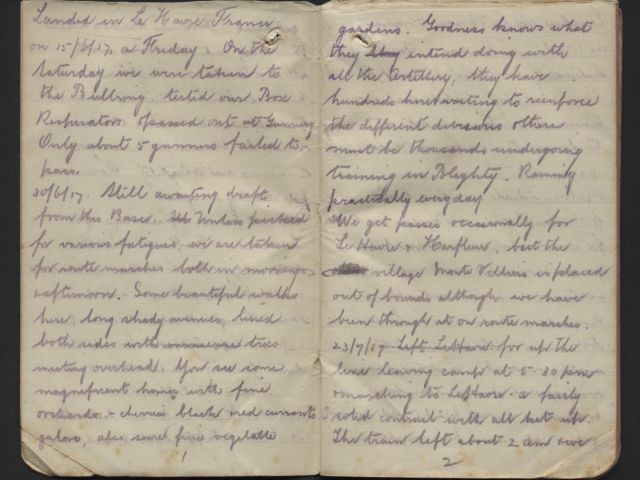 Landed in Le Havre France
on 15/6/17. a Friday. On the
Saturday we were taken to
the Bullring tested our Box
Respirators & passed out at Gunnery
Only about 5 gunners failed to
pass.
30/6/17. Still awaiting draft
from this Base. Unless picked
for various fatigues, we are taken
for route marches both in mornings
& afternoon. Some beautiful walks
here, long shady avenues, lined
both sides with trees
meeting overhead. You see some
magnificent homes with fine
orchards - cherries black & red currants
galore, also some fine vegetable
1
gardens. Goodness knows what
they they intend doing with
all the artillery, they have
hundreds here waiting to reinforce
the different divisions & there
must be thousands undergoing
training in Blighty. Raining
practically everyday
We get passes occasionally for
Le Havre & Harfleur, but the
village Monte Villiers is placed
out of bounds although we have
been through it on route marches.
23/7/17 Left LeHavre for up the
line leaving camp at 5-30 pm
& marching to LeHavre - a fairly
solid contract with all kit up.
The train left about 2 am &we
2